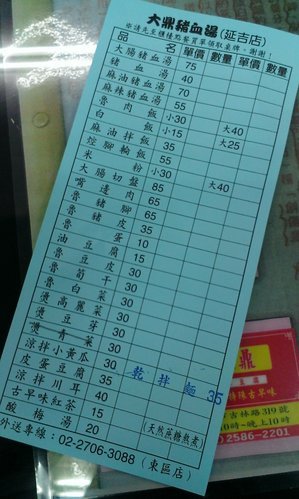 大鼎豬血湯(延吉店)
※請先至櫃檯點餐買單領取桌牌，謝謝
品名 單價 數量 單價 數量
大腸豬血湯 75
豬血湯 40
麻油豬血湯 70
麻辣豬血湯 55
魯肉飯 小30 大40
白飯 小15 大25
麻油拌飯 35
焢腳輪飯 55
米粉 小30 大40
大腸切盤 85
嘴邊肉 65
魯豬腳 65
魯豬皮 35
魯蛋 10
油豆腐 15
魯豆皮 30
魯筍干 30
魯白菜 30
燙高麗菜 30
燙豆芽 30
燙青菜 30
涼拌小黃瓜 30
皮蛋豆腐 35
涼拌川耳 40
古早味紅茶 15
酸梅湯 20
乾拌麵 35
天然蔗糖熬煮
外送專線：02-2706-3088 (東區店)
鼎
特殊古早味
吉林路319號
10~晚上10時
2586-2201